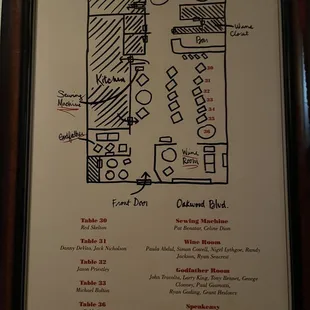 Wine
Closet
Bar
Kitchen
30
31
32
33
35
36
Sewing
Machine
Godfather
Wine
Room
Front Door
Oakwood Blvd.
Table 30
Red Skelton
Table 31
Danny DeVito, Jack Nicholson
Table 32
Jason Priestley
Table 33
Michael Bublé
Table 36
Sewing Machine
Pat Benatar, Celine Dion
Wine Room
Paula Abdul, Simon Cowell, Nigel Lythgoe, Randy
Jackson, Ryan Seacrest
Godfather Room
John Travolta, Larry King, Tony Bennett, George
Clooney, Paul Giamatti,
Ryan Gosling, Grant Heslov
Speakeasy